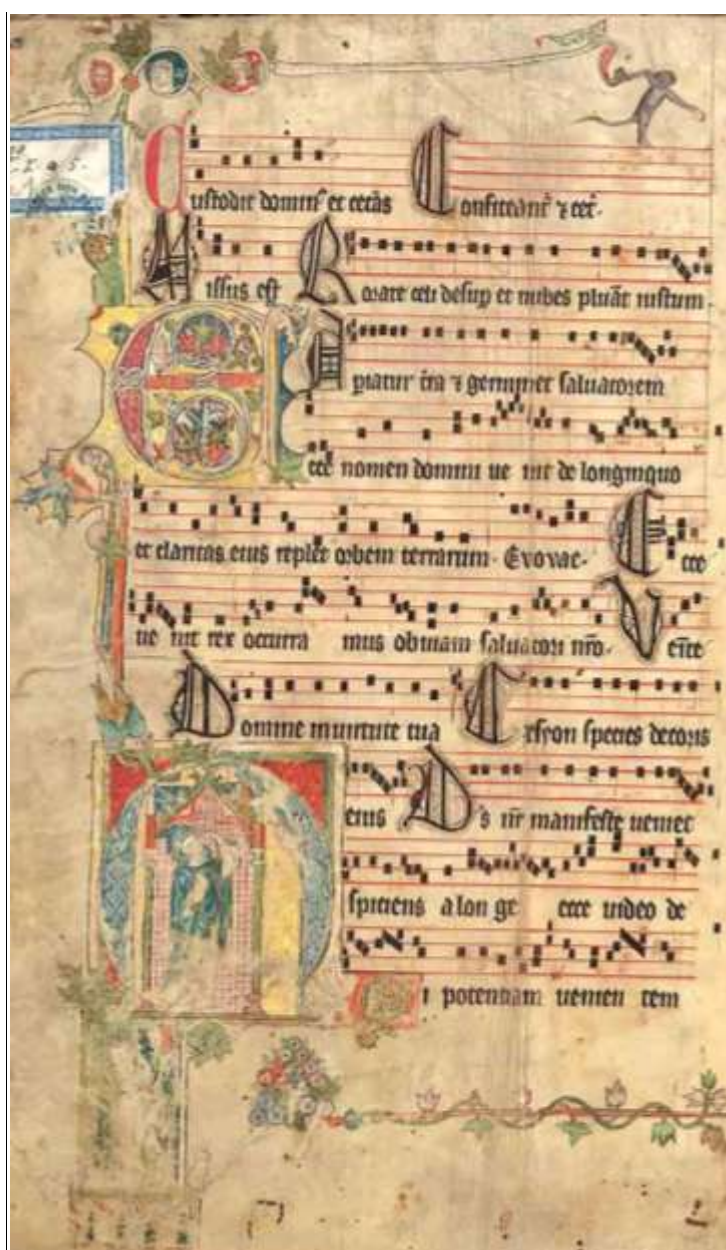 Custodit domin' et cetās Confiteant' ⁊ cet'.
Missus est Rorate celi desup et nubes pluāt iustum.
Aperiatur t'ra ⁊ germinet saluatorem
Ecce nomen domini ue nit de longinquo
et claritas eius replet orbem terrarum. Evovae. Ecce
ue nit rex occurra mus obuiam saluatori nr̄o. Ven̄ite
Domine in uirtute tua Ex syon species decoris
eius Ds nr̄ manifeste ueniet
Aspiciens a lon ge ecce uideo de
i potentiam uenien tem